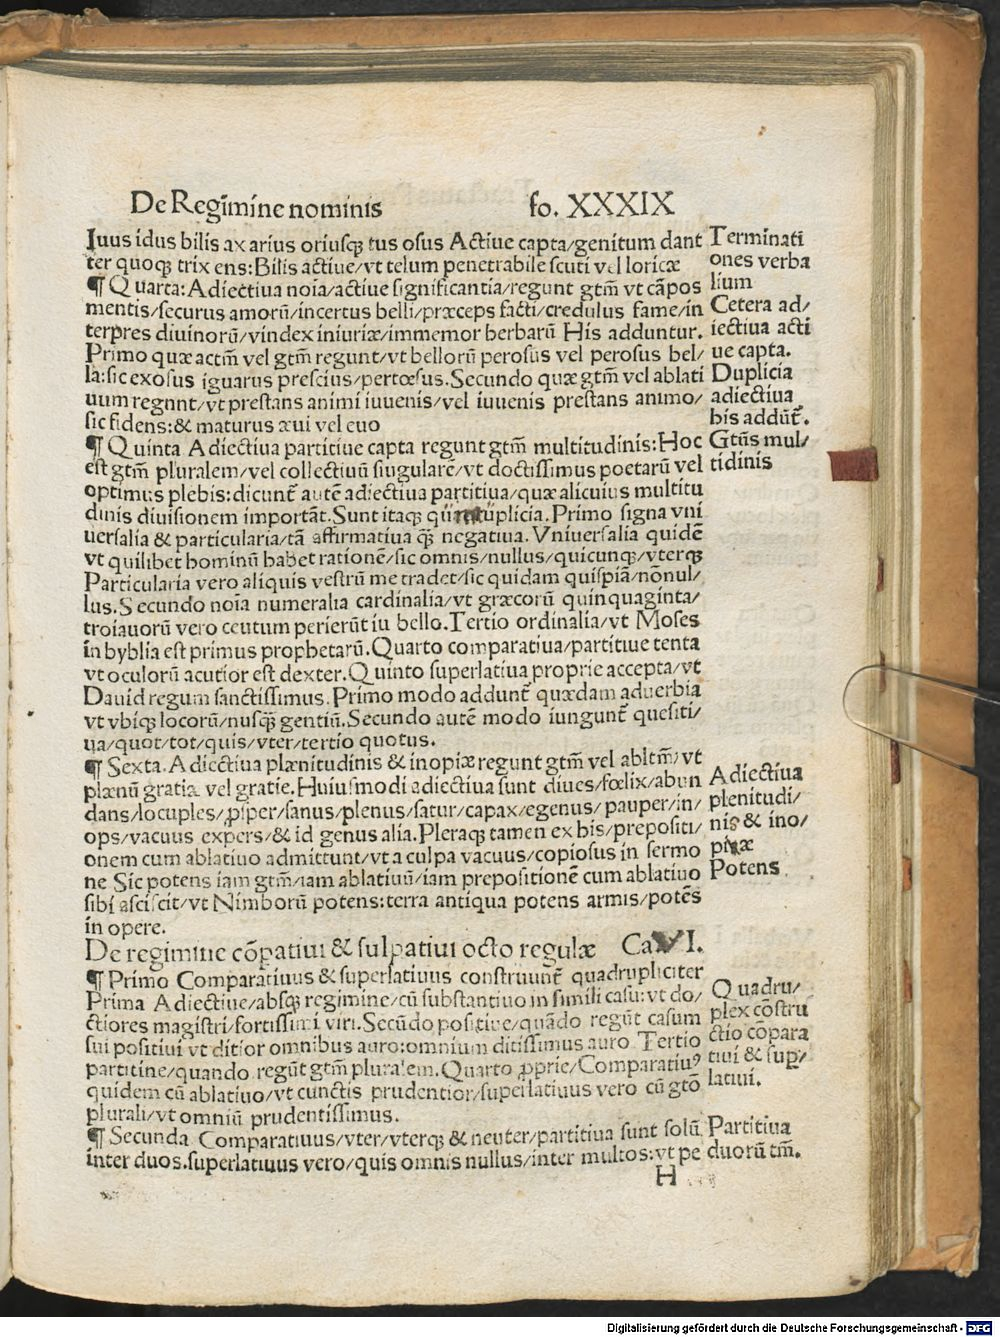 De Regimine nominis fo. XXXIX
Iuus idus bilis ax arius oriusqꝫ tus osus Actiue capta/genitum dant
ter quoqꝫ trix ens: Bilis actiue/vt telum penetrabile scuti vel loricæ
¶ Quarta: Adiectiua noīa/actiue significantia/regunt gtm̄ vt cāpos
mentis/securus amorū/incertus belli/præceps facti/credulus fame/in
terpres diuinorū/vindex iniuriæ/immemor herbarū His adduntur.
Primo quæ actm̄ vel gtm̄ regunt/vt bellorū perosus vel perosus bel/
la: sic exosus iguarus prescius/pertœsus. Secundo quæ gtm̄ vel ablati
uum regnnt/vt prestans animi iuuenis/vel iuuenis prestans animo/
sic fidens: & maturus æui vel euo
¶ Quinta Adiectiua partitiue capta regunt gtm̄ multitudinis: Hoc
est gtm̄ pluralem/vel collectiuū siugularē/vt doctissimus poetarū vel
optimus plebis: dicunt̄ autē adiectiua partitiua/quæ alicuius multitu
dinis diuisionem importāt. Sunt itaqꝫ uplicia. Primo signa vni
uersalia & particularia/tā affirmatiua qꝫ̄ negatiua. Vniuersalia quidē
vt quilibet hominū habet rationē/sic omnis/nullus/quicunqꝫ/vterqꝫ
Particularia vero aliquis vestrū me tradet/sic quidam quispiā/nōnul/
lus. Secundo noīa numeralia cardinalia/vt græcorū quinquaginta/
troiauorū vero ceutum perierūt iu bello. Tertio ordinalia/vt Moses
in byblia est primus prophetarū. Quarto comparatiua/partitiue tenta
vt oculorū acutior est dexter. Quinto superlatiua proprie accepta/vt
Dauid regum sanctissimus. Primo modo addunt̄ quædam aduerbia
vt vbiqꝫ locorū/nusqꝫ̄ gentiū. Secundo autē modo iungunt̄ quesiti/
ua/quot/tot/quis/vter/tertio quotus.
¶ Sexta. Adiectiua plænitudinis & inopiæ regunt gtm̄ vel abltm̄/vt
plænū gratia vel gratie. Huiusmodi adiectiua sunt diues/fœlix/abun
dans/locuples/ꝓsper/sanus/plenus/satur/capax/egenus/pauper/in/
ops/vacuus expers/& id genus alia. Pleraqꝫ tamen ex his/prepositi/
onem cum ablatiuo admittunt/vt a culpa vacuus/copiosus in sermo
ne Sic potens iam gtm̄/iam ablatiuū/iam prepositionē cum ablatiuo
sibi asciscit/vt Nimborū potens: terra antiqua potens armis/potēs
in opere.
De regimine cōpatiui & sulpatiui octo regulæ Ca. VI.
¶ Primo Comparatiuus & superlatiuus construunt̄ quadrupliciter
Prima Adiectiue/absqꝫ regimine/cū substantiuo in simili casu: vt do/
ctiores magistri/fortissimi viri. Secūdo positiue/quādo regūt casum
sui positiui vt ditior omnibus auro: omnium ditissimus auro Tertio
partitine/quando regūt gtm̄ pluralem. Quarto ꝓprie/Comparatiuꝰ
quidem cū ablatiuo/vt cunctis prudentior/superlatiuus vero cū gtō
plurali/vt omniū prudentissimus.
¶ Secunda Comparatiuus/vter/vterqꝫ & neuter/partitiua sunt solū
inter duos. superlatiuus vero/quis omnis nullus/inter multos: vt pe
H
Terminati
ones verba
lium
Cetera ad/
iectiua acti
ue capta.
Duplicia
adiectiua
his addūt̄.
Gtūs mul/
tidinis
Adiectiua
plenitudi/
nis & ino/
piæ
Potens
Quadru/
plex cōstru
ctio cōpara
tiui & sup/
latiui.
Partitiua
duorū tm̄.
Digitalisierung gefördert durch die Deutsche Forschungsgemeinschaft - DFG